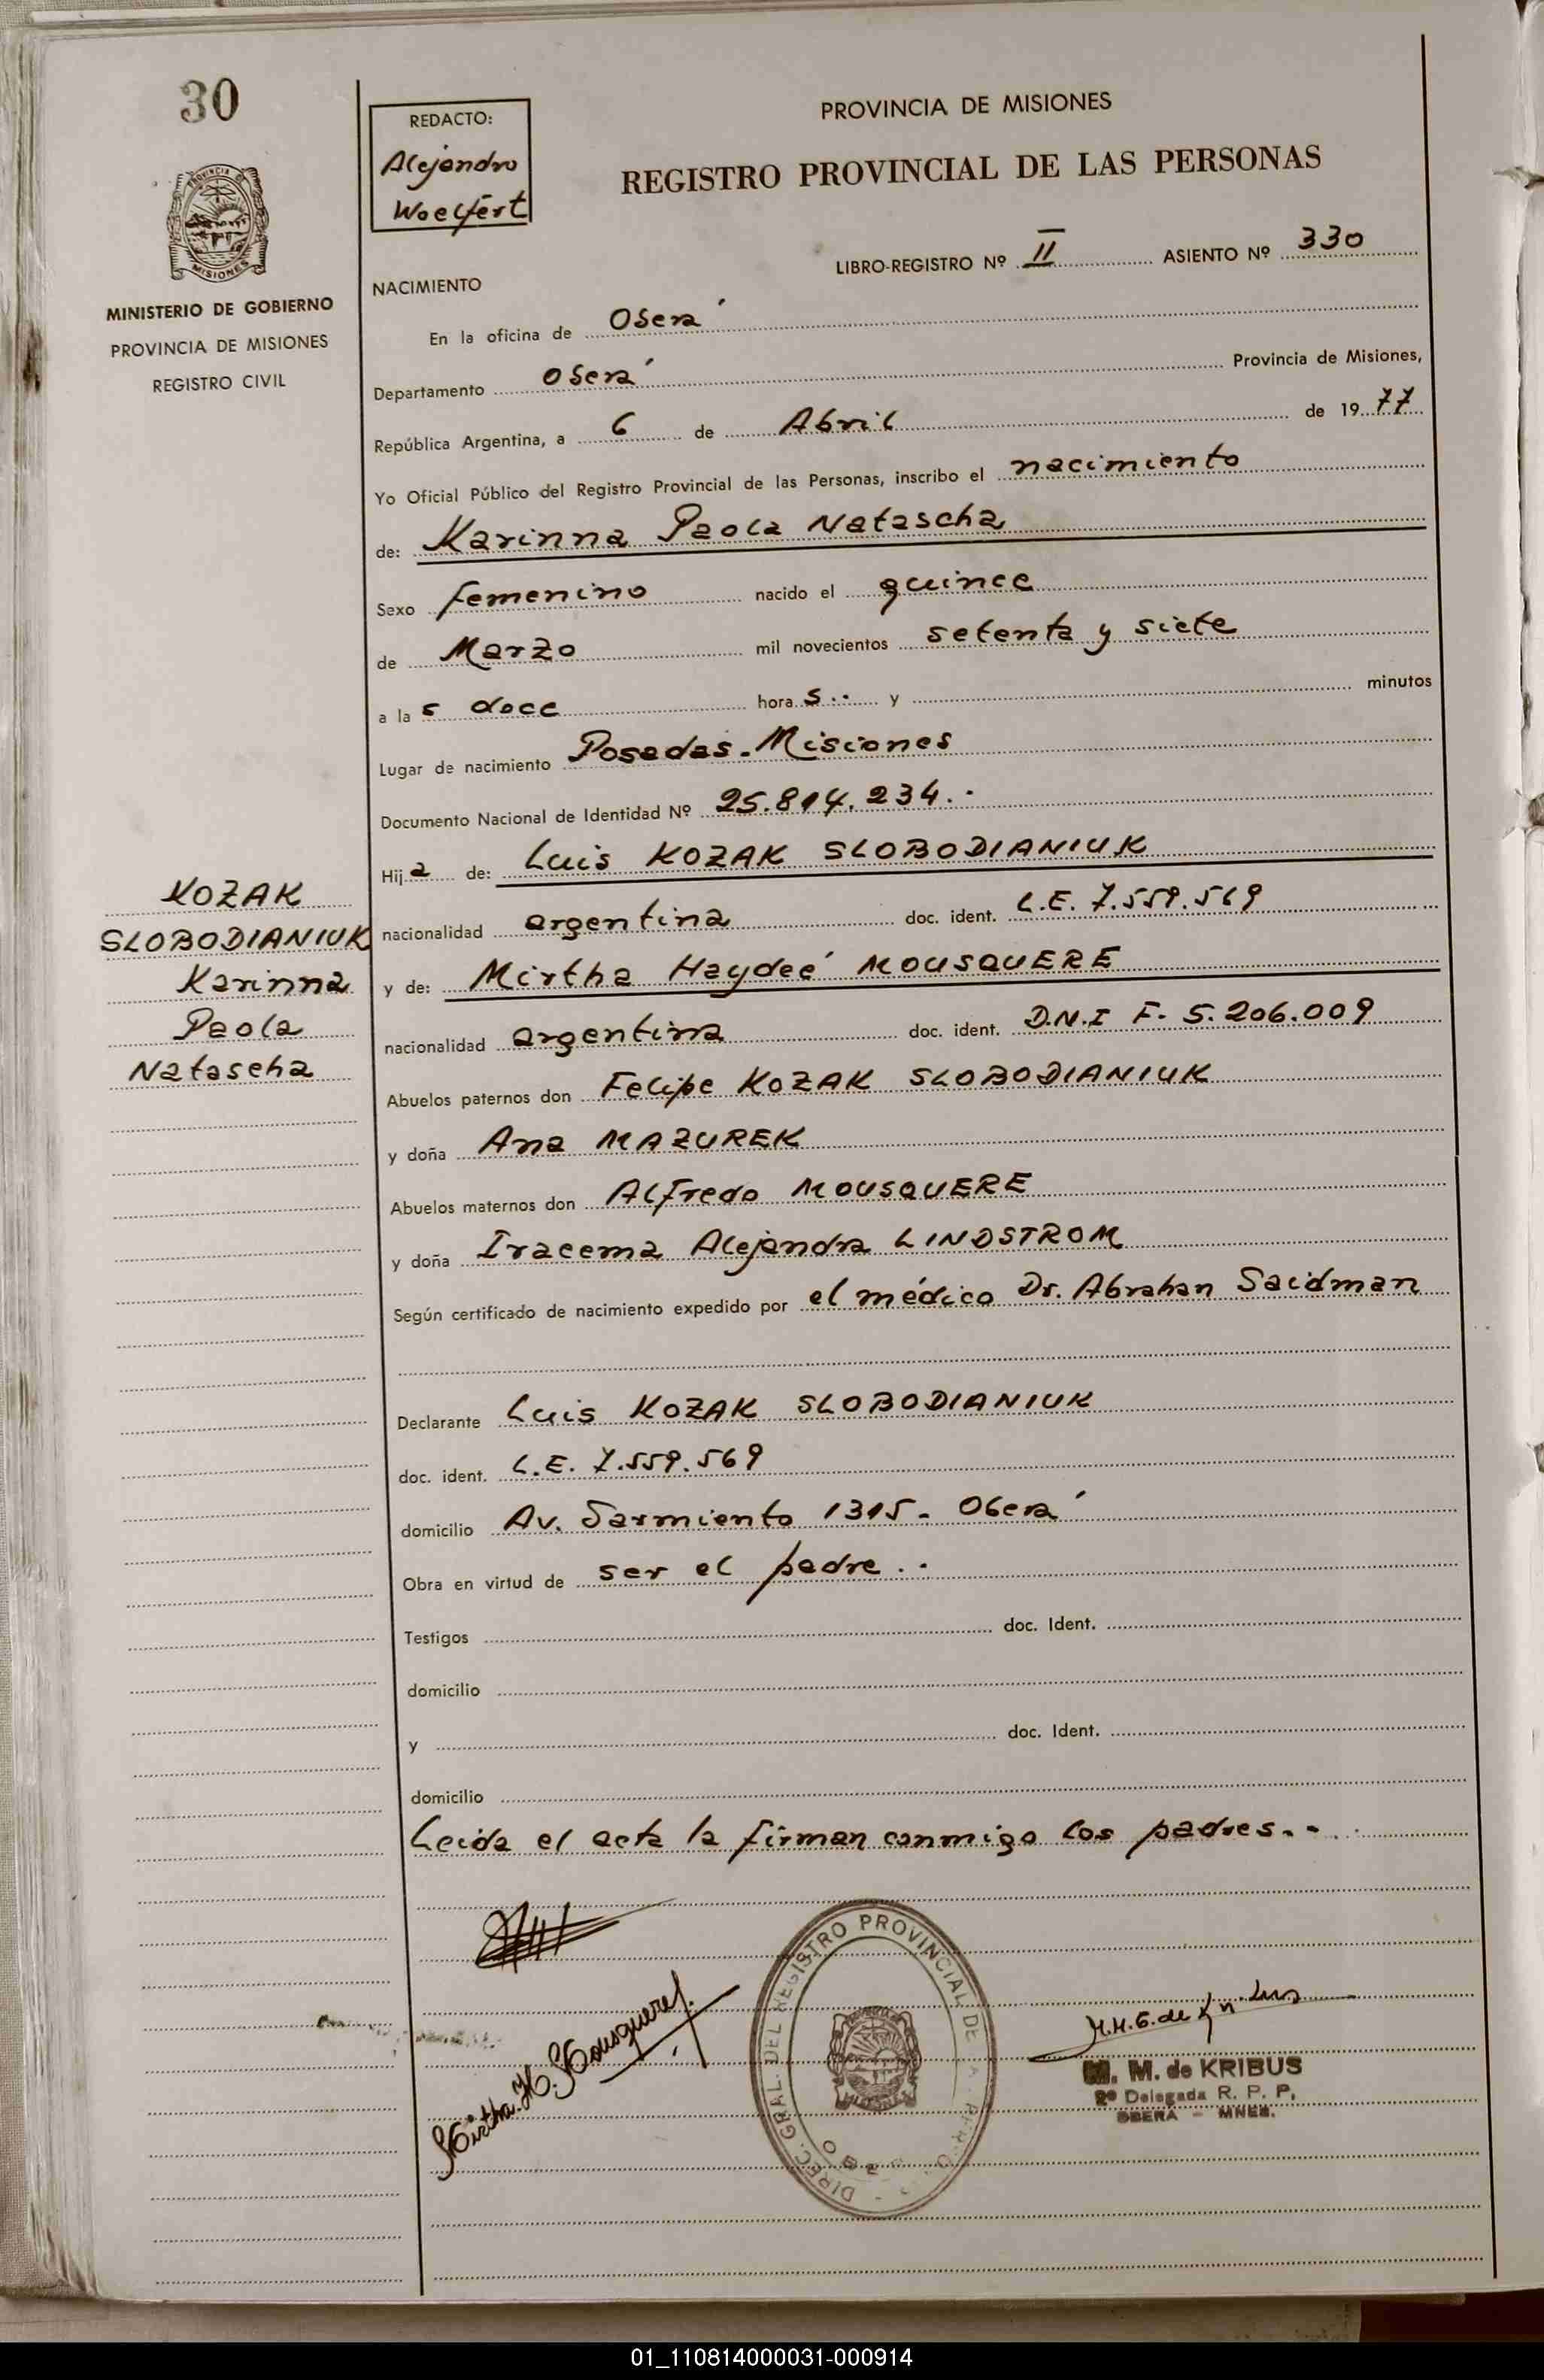 30
PROVINCIA DE MISIONES
MINISTERIO DE GOBIERNO
PROVINCIA DE MISIONES
REGISTRO CIVIL
REDACTO:
Alejandro
Woelfert
PROVINCIA DE MISIONES
REGISTRO PROVINCIAL DE LAS PERSONAS
LIBRO-REGISTRO Nº II ASIENTO Nº 330
NACIMIENTO
En la oficina de Oberá
Departamento Oberá Provincia de Misiones,
República Argentina, a 6 de Abril de 1977
Yo Oficial Público del Registro Provincial de las Personas, inscribo el nacimiento
de: Karinna Paola Natascha
Sexo femenino nacido el quince
de Marzo mil novecientos setenta y siete
a las doce horas.. y minutos
Lugar de nacimiento Posadas-Misiones
Documento Nacional de Identidad Nº 25.814.234.-
Hija de: Luis KOZAK SLOBODIANIUK
nacionalidad argentina doc. ident. L.E. 7.559.569
y de: Mirtha Haydeé MOUSQUERE
nacionalidad argentina doc. ident. D.N.I F. 5.206.009
Abuelos paternos don Felipe KOZAK SLOBODIANIUK
y doña Ana MAZUREK
Abuelos maternos don Alfredo MOUSQUERE
y doña Iracema Alejandra LINDSTROM
Según certificado de nacimiento expedido por el médico Dr. Abrahan Saidman
Declarante Luis KOZAK SLOBODIANIUK
doc. ident. L.E. 7.559.569
domicilio Av. Sarmiento 1315- Oberá
Obra en virtud de ser el padre..
Testigos doc. Ident.
domicilio
y doc. Ident.
domicilio
Leida el acta la firman conmigo los padres.-
KOZAK
SLOBODIANIUK
Karinna
Paola
Natascha
Mirtha H. Mousquere
DIREC. GRAL. DEL REGISTRO PROVINCIAL DE
M. M. de KRIBUS
2º Delegada R. P. P.
OBERA - MNES.
01_110814000031-000914